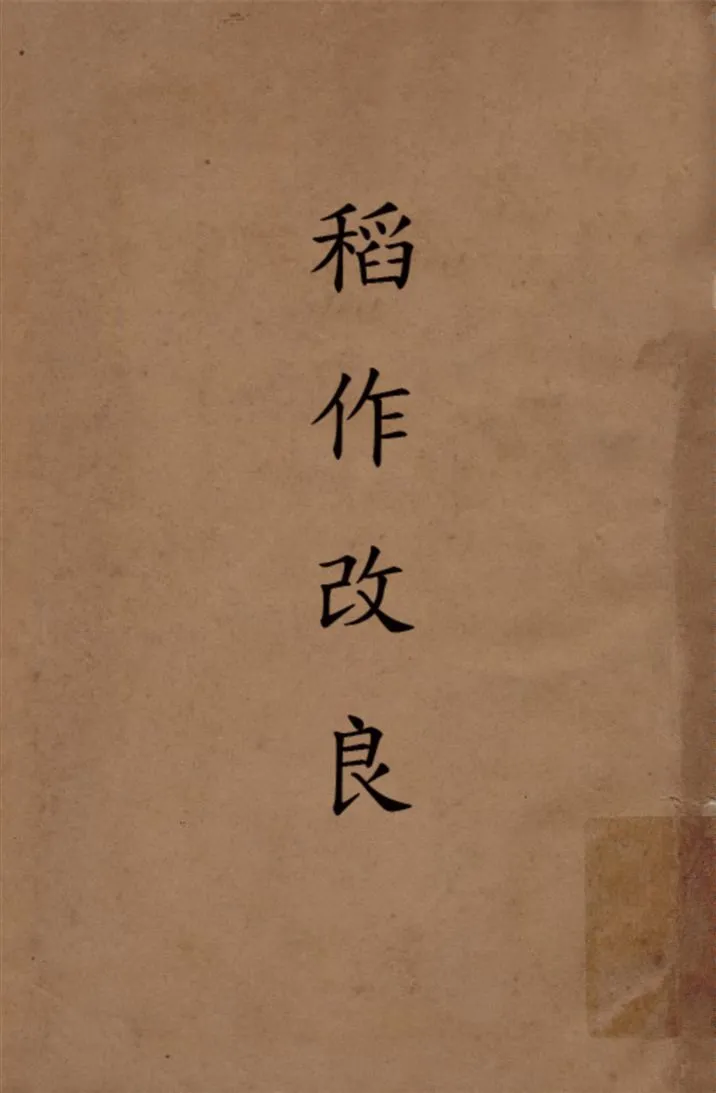 稻作改良